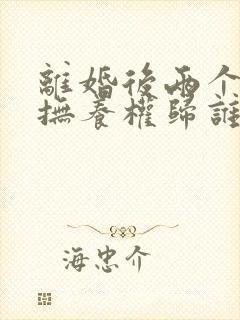 離婚後两个
撫養權歸誰
海忠介